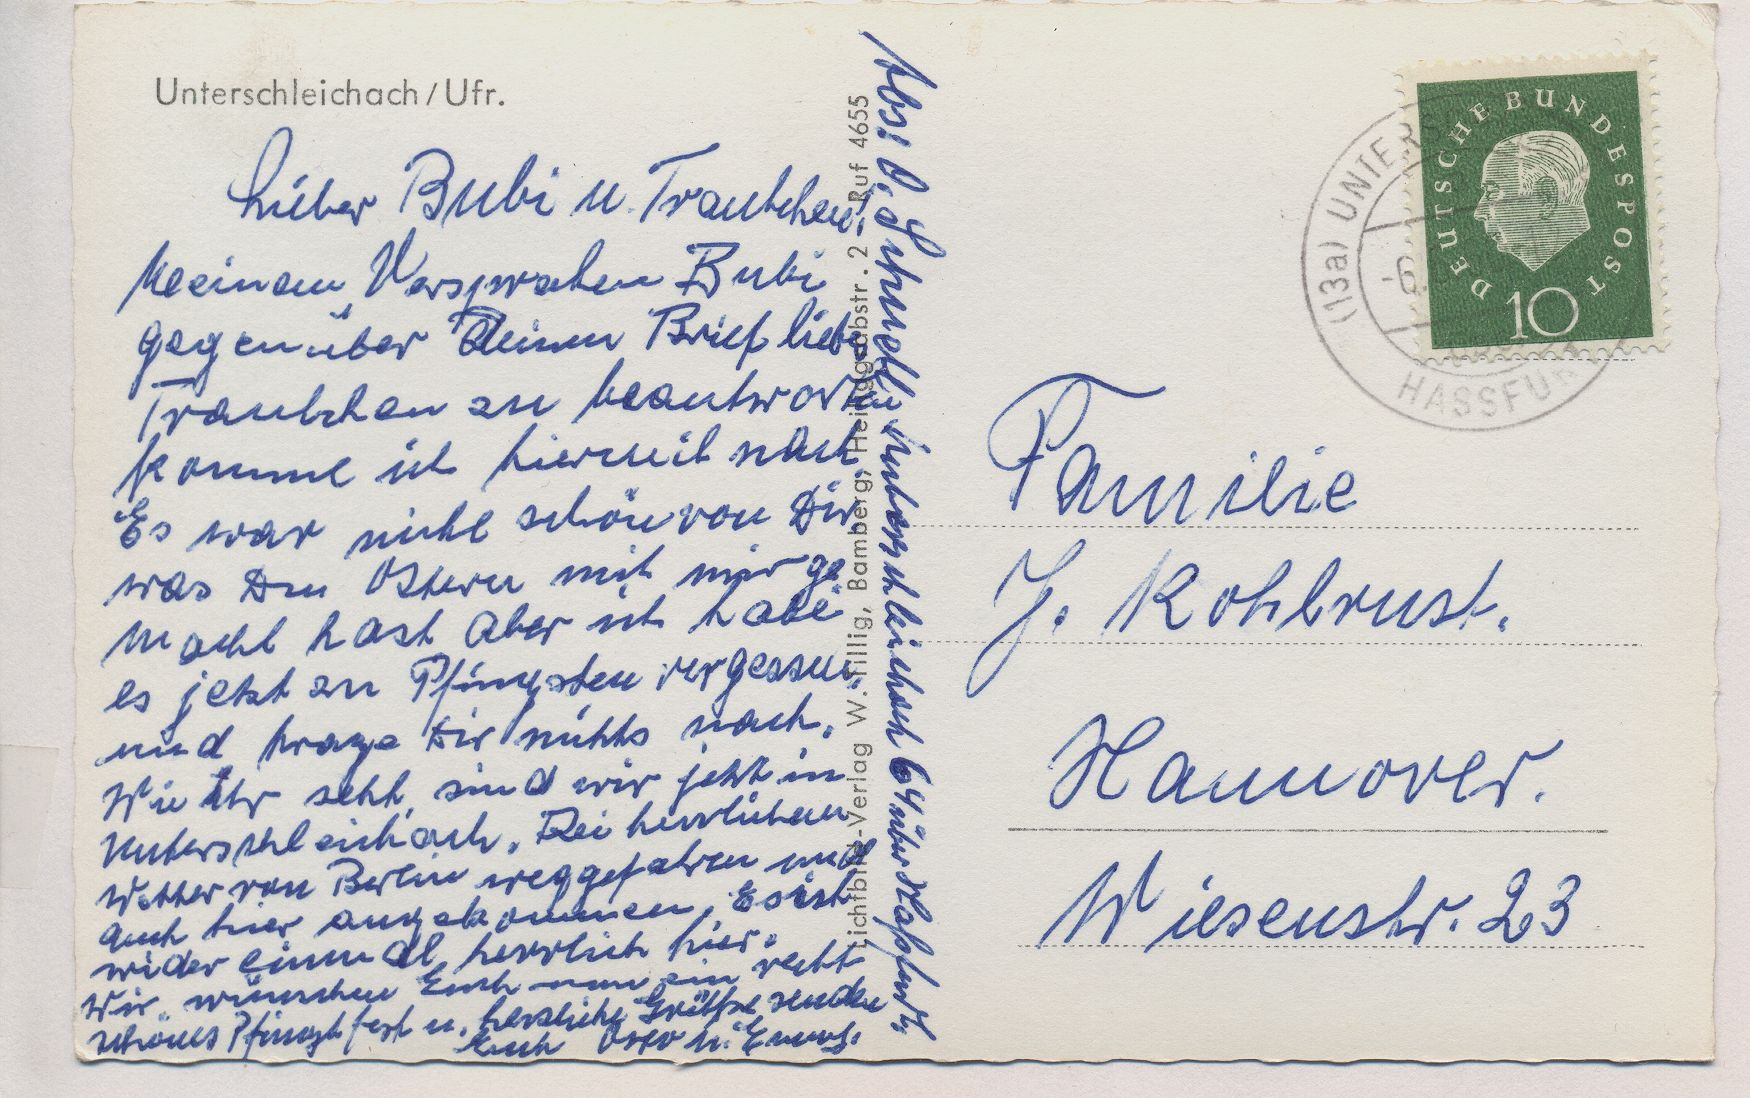 Unterschleichach / Ufr.
Lieber Bubi u. Traubchen!
Meinem Versprechen Bubi
gegenüber Deinen Brief liebe
Traubchen zu beantworten
komme ich hiermit nach.
Es war nicht schön von Dir
was Du Ostern mit mir ge
macht hast Aber ich habe
es jetzt zu Pfingsten vergessen,
und trage Dir nichts nach.
Wie Ihr seht, sind wir jetzt in
Unterschleichach. Bei herrlichem
Wetter von Berlin weggefahren und
auch hier angekommen. Es ist
wider einmal herrlich hier.
Wir wünschen Euch nun ein recht
schönes Pfingstfest u. herzliche Grüße senden
Euch Otto u.
Lichtbild-Verlag W. Tillig, Bamberg, Heiliggrabstr. 2 Ruf 4655
Abs: O. Unterschleichach 64 über Haßfurt.
DEUTSCHE BUNDESPOST
10
(13a) UNTERS
-6.
HASSFU
Familie
J. Kohbrust.
Hannover.
Wiesenstr. 23